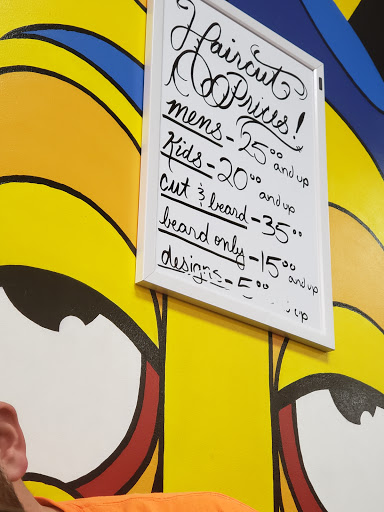 Haircut
Prices!
mens - 25⁰⁰ and up
Kids - 20⁰⁰ and up
cut & beard - 35⁰⁰
beard only - 15⁰⁰ and up
designs - 5⁰⁰ up